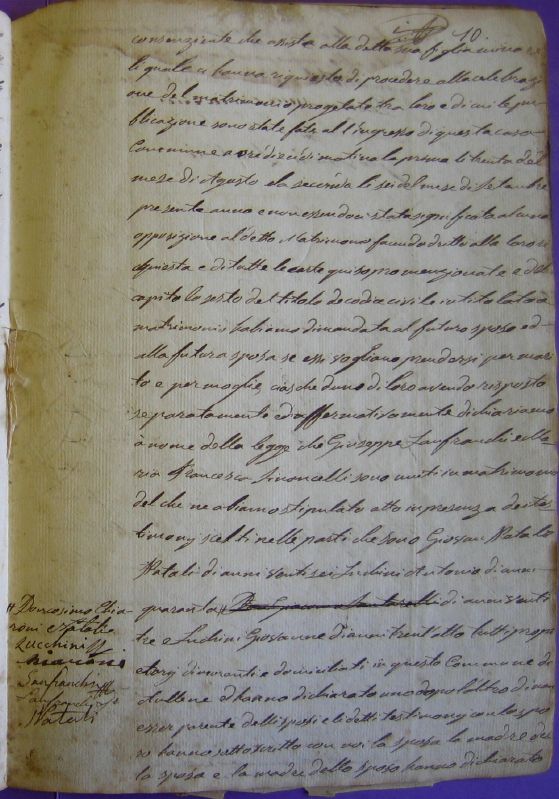 10
consenziente che assista alla detta sua figlia minore
li quali ci hanno riquesto di procedere alla celebrazi
one del matrimonio progetato tra loro e di cui le pu
blicazione sono state fate all'ingresso di questa casa
Commune a ore dieci di matina la prima li trenta del
mese di Agosto e la seconda li sei del mese di Setembre
presente anno e non essendoci stata significata alcuna
opposizione al detto Matrimonio facendo dritti alla loro
quiesta e di tutte le carte qui sopra menzionate e del
capitolo sesto del titolo del codice civile intitolato
matrimonii habiamo dimandata al futuro sposo ed
alla futura sposa se essi vogliano prendersi per mari
to e per moglie, ciascheduno di loro avendo risposto
separatamente ed affermativamente dichiariamo
a nome della legge che Giuseppe Lanfranchi e Ma
ria Francesca Simoncelli sono uniti in matrimonio
del che ne abiamo stipulato atto in presenza de tes
timony scelti nelle parti che sono Giovan Natale
Natali di anni venti sei Luchini Antonio di anni
quaranta di anni venti
tre e Luchini Giovanne d'anni trent'otto tutti propri
etary dimoranti e domiciliati in questo Commune di
e hanno dichiarato uno dopo l'altro di non
esser parente delli sposi e li detti testimony con lo spo
so hanno sottoscritto con noi la sposa la madre de
la sposa e la madre dello sposo hanno dichiarato
Chia
roni e Natale
Lucchini
Lanfranchi
Natali